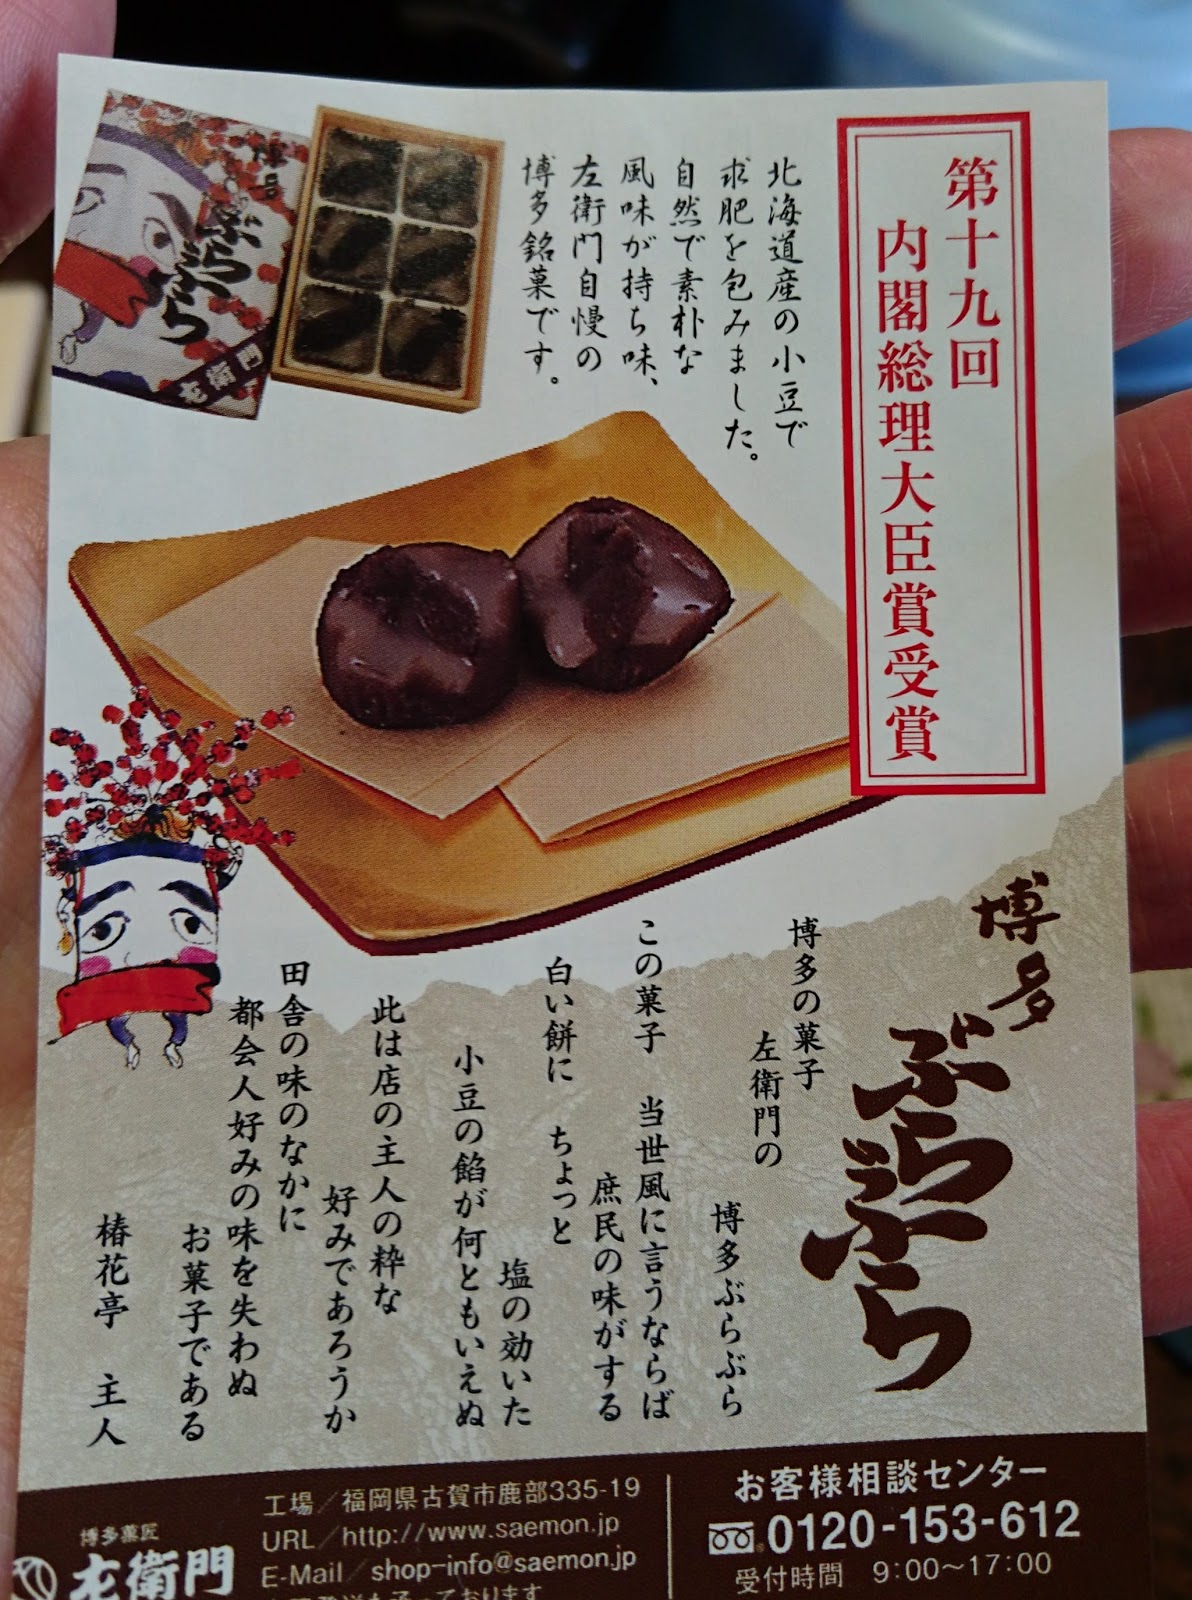 第十九回
内閣総理大臣賞受賞
北海道産の小豆で
求肥を包みました。
自然で素朴な
風味が持ち味、
左衛門自慢の
博多銘菓です。
博多
ぶらぶら
左衛門
博多
ぶらぶら
博多の菓子
左衛門の
博多ぶらぶら
この菓子 当世風に言うならば
庶民の味がする
白い餅に ちょっと
塩の効いた
小豆の餡が何ともいえぬ
此は店の主人の粋な
好みであろうか
田舎の味のなかに
都会人好みの味を失わぬ
お菓子である
椿花亭 主人
博多菓匠
左衛門
工場/福岡県古賀市鹿部335-19
URL/http://www.saemon.jp
E-Mail/shop-info@saemon.jp
お客様相談センター
0120-153-612
受付時間 9:00〜17:00